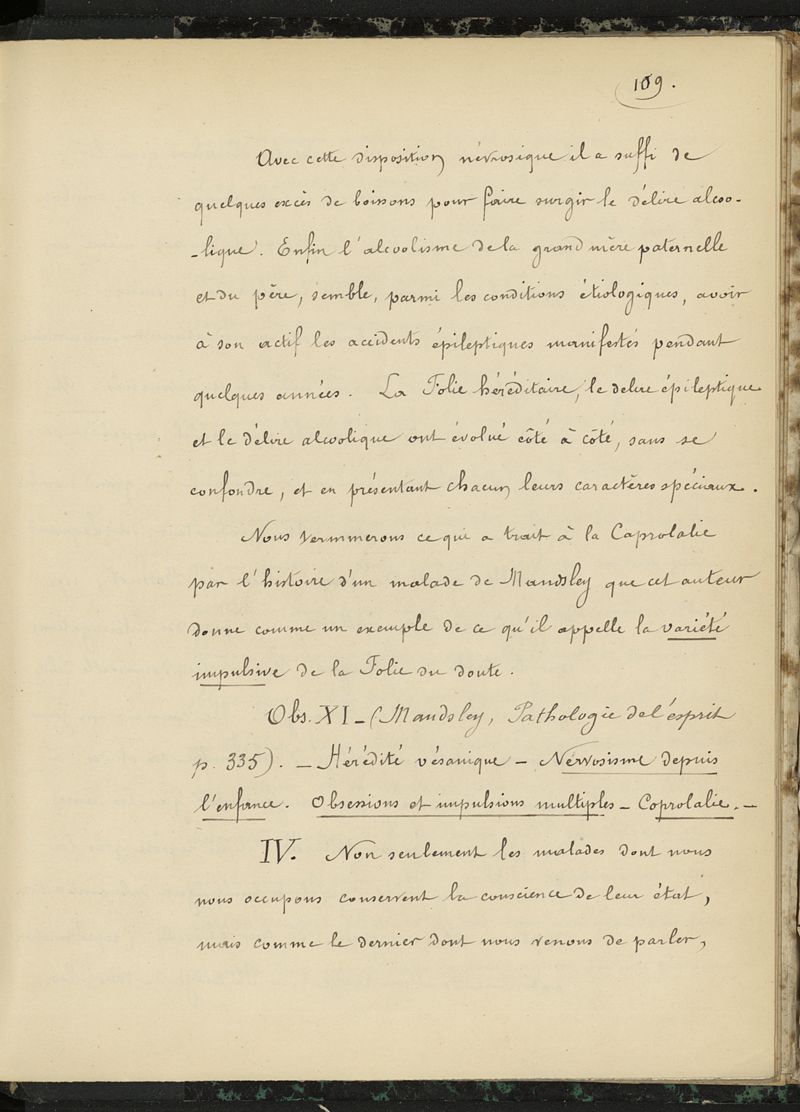 109.
Avec cette disposition névrosique il a suffi de
quelques excès de boissons pour faire surgir le délire alcoo-
-lique. Enfin l'alcoolisme de la grand mère paternelle
et du père, semble, parmi les conditions étiologiques, avoir
à son actif les accidents épileptiques manifestés pendant
quelques années. La Folie héréditaire, le delire épileptique
et le délire alcoolique ont évolué côté à côté, sans se
confondre, et en présentant chacun leurs caractères spéciaux.
Nous terminerons ce qui a trait à la Caprolalie
par l'histoire d'un malade de Mandsley que cet auteur
donne comme un exemple de ce qu'il appelle la variété
impulsive de la Folie du doute.
Obs. XI - (Mandsley, Pathologie de l'esprit
p. 335). - Hérédité vésanique - Nervosisme depuis
l'enfance. Obsessions et impulsions multiples - Coprolalie. -
IV. Non seulement les malades dont nous
nous occupons conservent la conscience de leur état,
mais comme le dernier dont nous venons de parler,